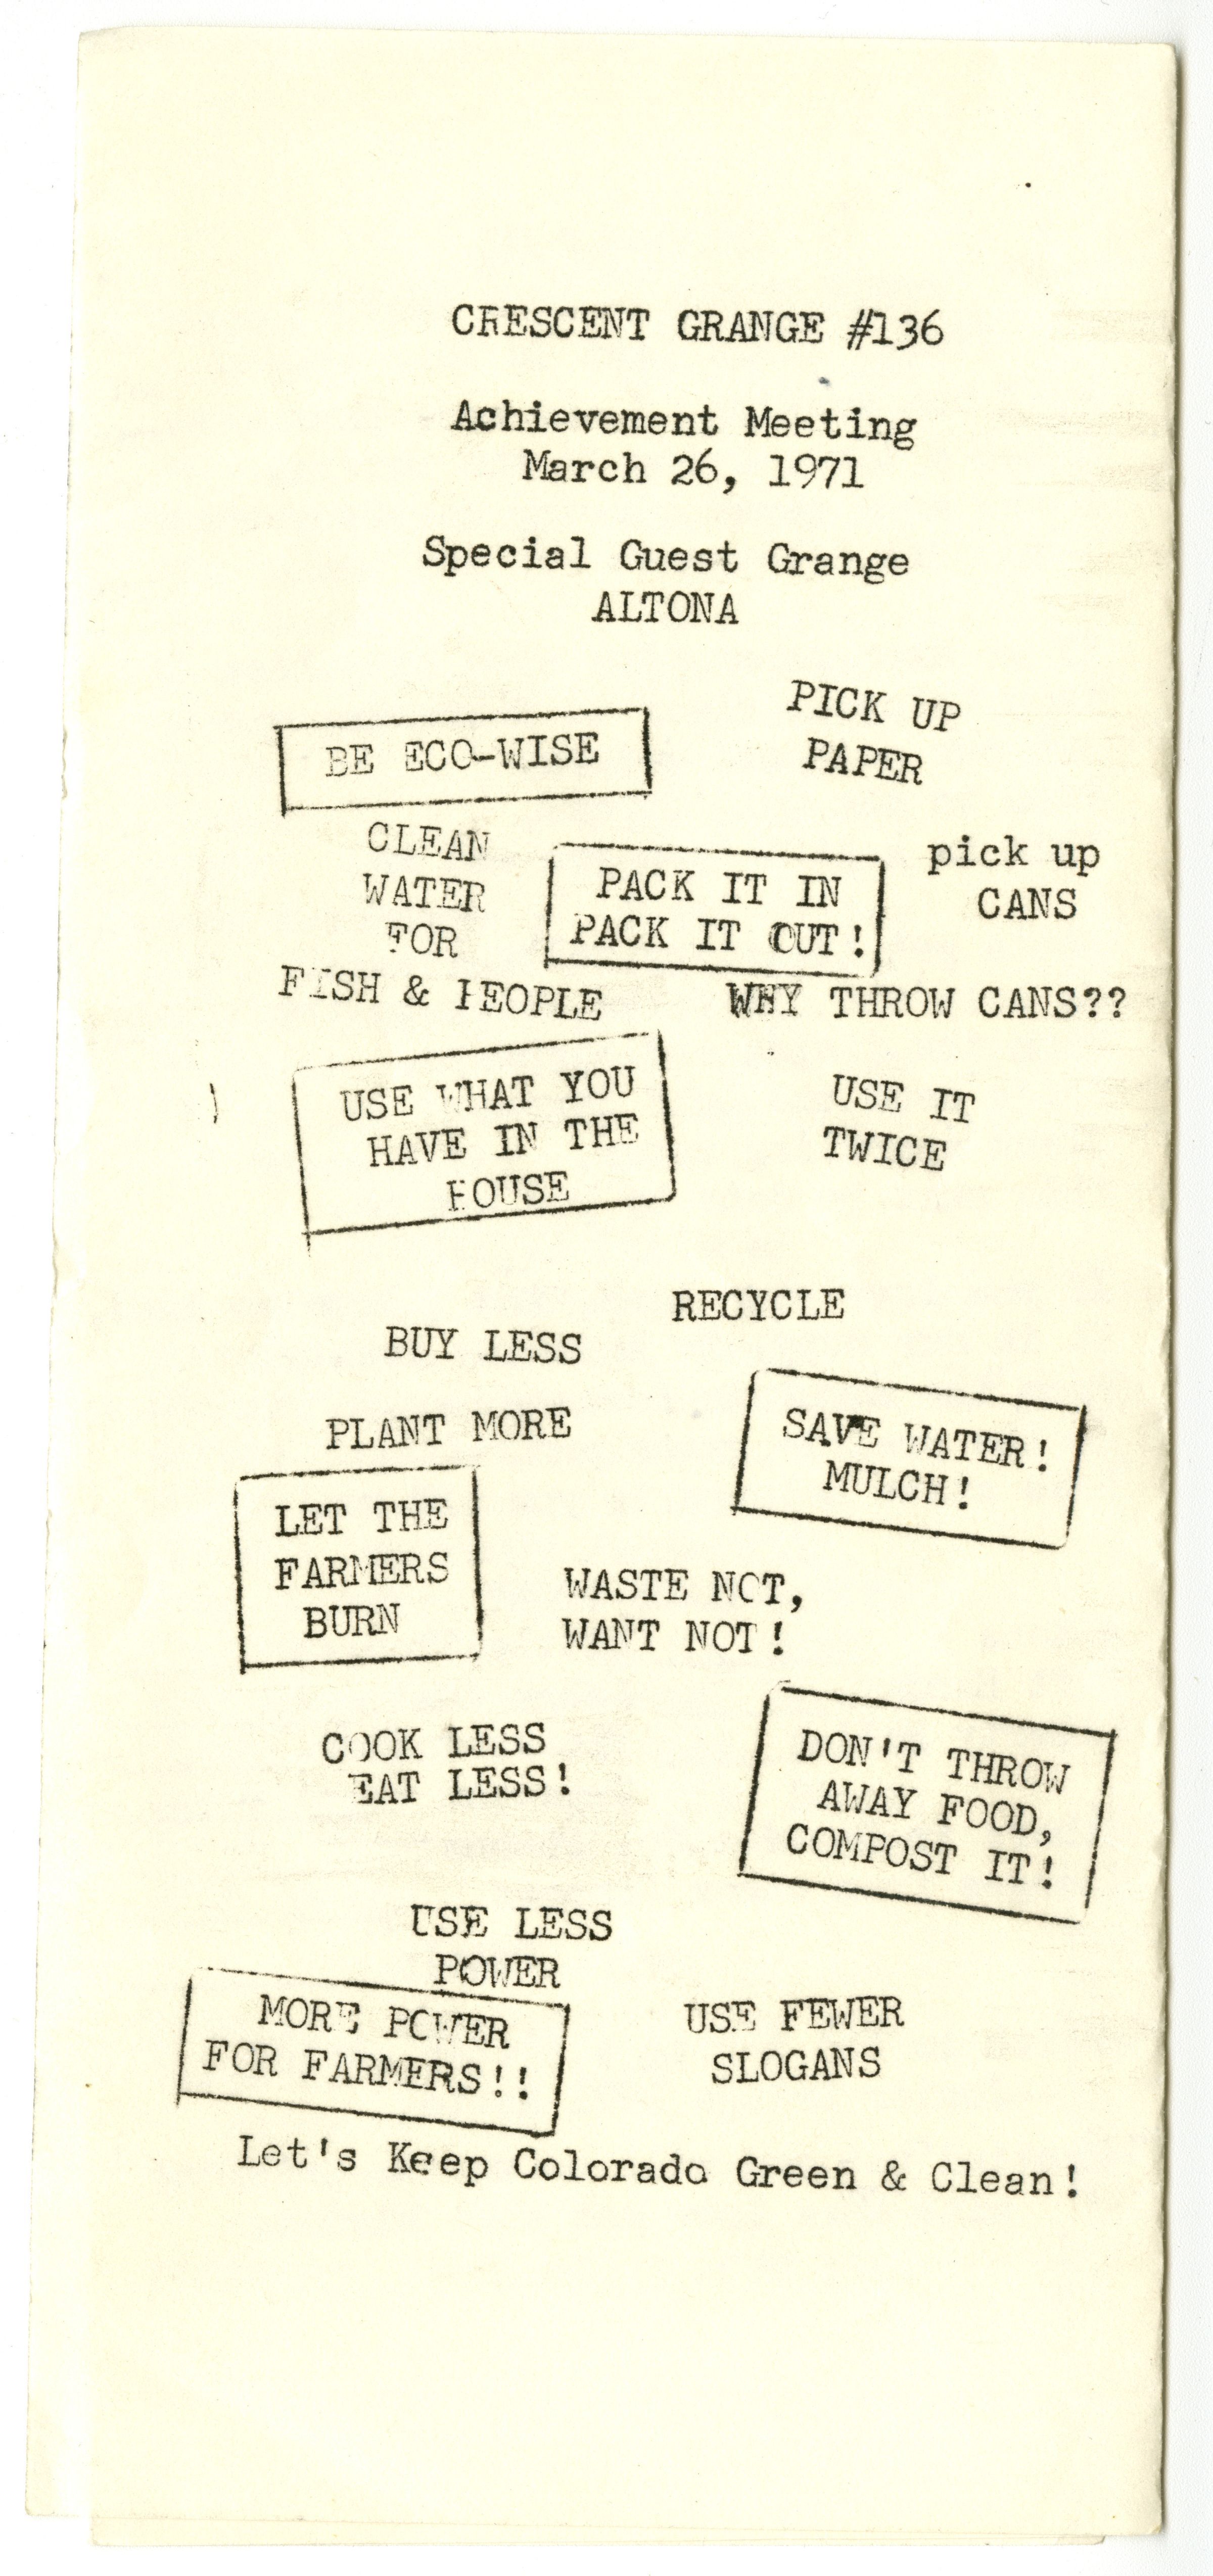 CRESCENT GRANGE #136
Achievement Meeting
March 26, 1971
Special Guest Grange
ALTONA
BE ECO-WISE
PICK UP
PAPER
CLEAN
WATER
FOR
FISH & PEOPLE
PACK IT IN
PACK IT OUT!
pick up
CANS
WHY THROW CANS??
USE WHAT YOU
HAVE IN THE
HOUSE
USE IT
TWICE
RECYCLE
BUY LESS
PLANT MORE
SAVE WATER!
MULCH!
LET THE
FARMERS
BURN
WASTE NOT,
WANT NOT!
COOK LESS
EAT LESS!
DON'T THROW
AWAY FOOD,
COMPOST IT!
USE LESS
POWER
MORE POWER
FOR FARMERS!!
USE FEWER
SLOGANS
Let's Keep Colorado Green & Clean!